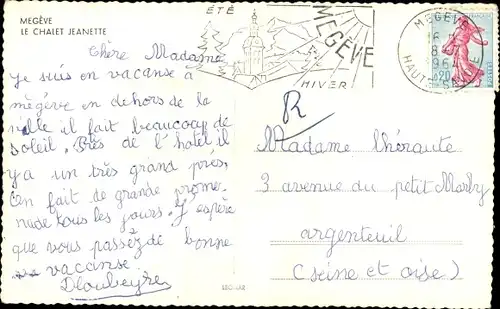 MEGÈVE
LE CHALET JEANETTE
Chère Madame
je suis en vacanse à
mègève en dehors de la
ville il fait beaucoup de
soleil. Près de l'hôtel il
y a un très grand près,
on fait de grande prome-
nade tous les jours. J'espère
que vous passez de bonne
vacanse
ÉTÉ
MEGÈVE
HIVER
MEGÈVE
HAUTE-SAVOIE
R
Madame Lhéraute
3 avenue du petit Marly
argenteuil
(seine et oise)